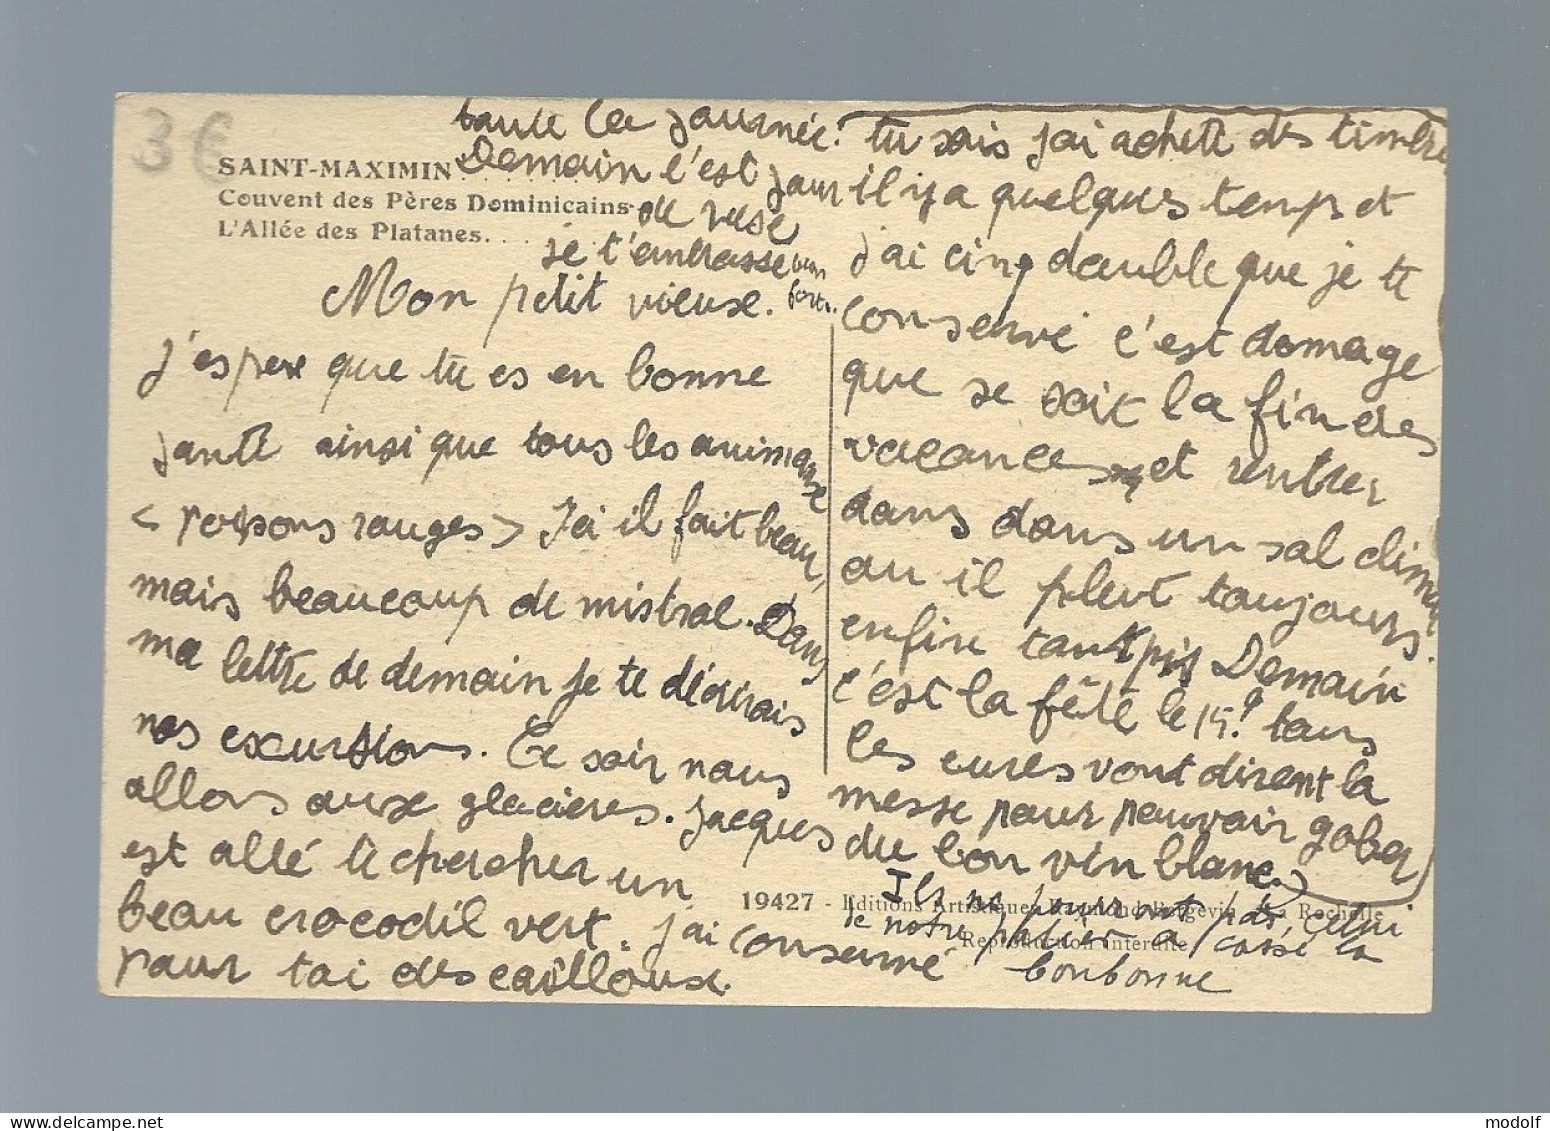 3€
SAINT-MAXIMIN
Couvent des Pères Dominicains
L'Allée des Platanes.
Mon petit vieuse.
J'espere que tu es en bonne
santé ainsi que tous les animause
< poissons rouges > Ici il fait beau,
mais beaucoup de mistral. Dans
ma lettre de demain je te décrirais
nos excursions. Ce soir nous
allons ause glacieres. Jacques
est allé te chercher un
beau crocodil vert. J'ai conservé
pour toi des cailloux.
tu sais j'ai acheté des timbre
il y a quelques temps et
j'ai cinq double que je te
conservé c'est domage
que se soit la fin des
vacances et rentrer
dans dans un sal climat
ou il pleut toujours.
enfin tant pis Demain
c'est la fête le 15. tous
les cures vont dirent la
messe pour pouvoir gober
du bon vin blanc.)
Ils ne pourront pas, celui
de notre a cassé la
bonbonne
toute la journée.
Demain c'est jour
de
je t'embrasse bien
fort.
19427 - Editions Artistiques Raymond Bergevin - La Rochelle
Reproduction interdite
modolf